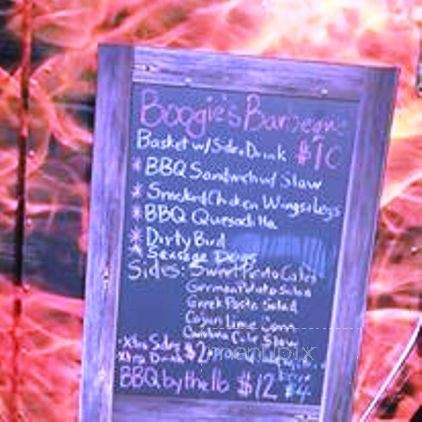 Boogie's Barbeque
Basket w/Side, Drink $10
* BBQ Sandwich w/ Slaw
* Smoked Chicken Wings & Legs
* BBQ Quesadilla
* Dirty Bird
* Sausage Dogs
Sides: Sweet Potato Cakes
German Potato Salad
Greek Pasta Salad
Cajun Lime Corn
Carolina Cole Slaw
Xtra Sides $2
Xtra Drink
BBQ by the lb $12